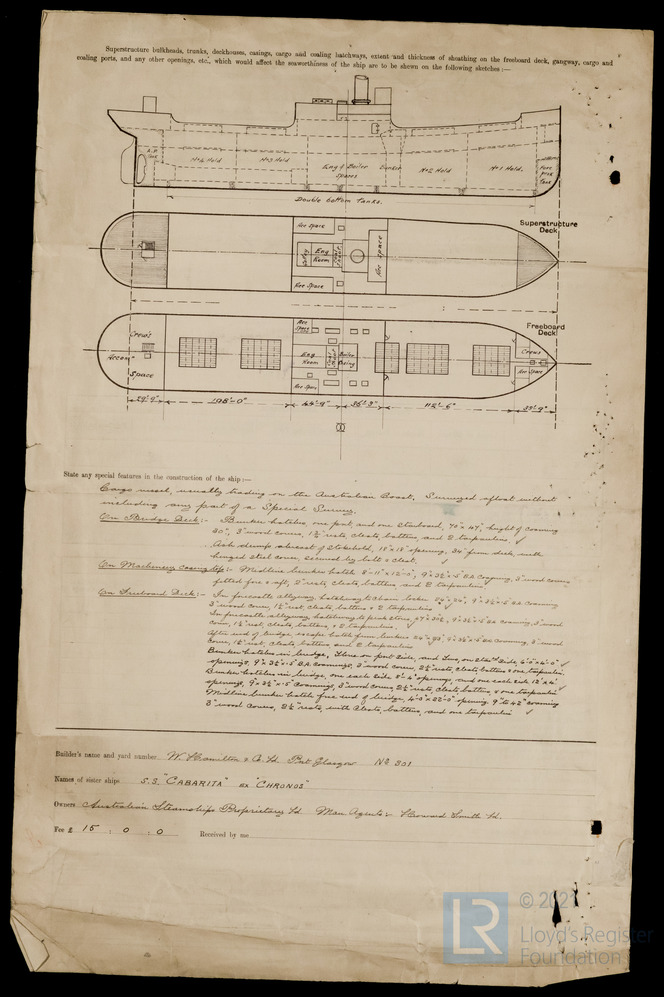 Superstructure bulkheads, trunks, deckhouses, casings, cargo and coaling hatchways, extent and thickness of sheathing on the freeboard deck, gangway, cargo and
coaling ports, and any other openings, etc., which would affect the seaworthiness of the ship are to be shewn on the following sketches:—
A.P. Tank
No 4 Hold
No 3 Hold
Eng & Boiler Spaces
Bunker
No 2 Hold
No 1 Hold.
Fore Peak Tank
Double bottom Tanks.
Superstructure
Deck
Acc Space
Eng Room
Acc Space
Acc Space
Freeboard
Deck
Crew's
Accomn
Space
Acc Space
Eng Room
Boiler Casing
Acc Space
Crews
Acc Space
29'-9"
108'-0"
44'-9"
36'-3"
112'-6"
State any special features in the construction of the ship:—
Cargo vessel, usually trading on the Australian Coast. Surveyed afloat without
including any part of a Special Survey.
On Bridge Deck:- Bunker hatches, one port, and one starboard, height of coaming
30", 3" wood covers, 1½ rests, cleats, battens, and 2 tarpaulins
Ash dump abreast of stokehold, 18"x18" opening, 24" from deck, with
hinged steel cover, secured by bolt & cleat.
On Machinery casing top:- Midline bunker hatch coaming, 3" wood covers
fitted fore & aft, 2" rests, cleats, battens and 2 tarpaulins
On Freeboard Deck:- In forecastle alleyway, hatchway to chain locker 24"x24", 9"x3½"x.5 BA coaming
3" wood cover, 1½" rest, cleats, battens & 2 tarpaulins
In forecastle alleyway, hatchway to peak stores, 9"x3½"x.5 BA coaming, 3" wood
cover, 1½" rest, cleats, battens, & 2 tarpaulins.
After end of bridge, escape hatch from bunkers 9"x3½"x.5 BA coaming, 3" wood
cover, 1½" rest, cleats, battens, and 2 tarpaulins
Bunker hatches in bridge, Three on port side, and two, on starbd side,
openings, 9"x3½"x.5 BA coamings, 3" wood cover, 2½" rests, cleats, battens & one tarpaulin.
Bunker hatches in bridge, one each side openings, and one each side
openings, 9"x3½"x.5 Coamings, 3" wood covers, 2½" rests, cleats, battens, & one tarpaulin
Midline bunker hatch fore end of bridge, 4'-0"x22'-0" opening, coaming
3" wood covers, 2½" rests, with cleats, battens, and one tarpaulin
Builder's name and yard number W. Hamilton & Co. Ld. Port Glasgow No 301
Names of sister ships S.S. "CABARITA" ex "CHRONOS"
Owners Australian Steamships Proprietary Ld. Man Agents: Howard Smith Ld.
Fee £ 15 : 0 : 0 Received by me
LR
© 2021
Lloyd's Register
Foundation